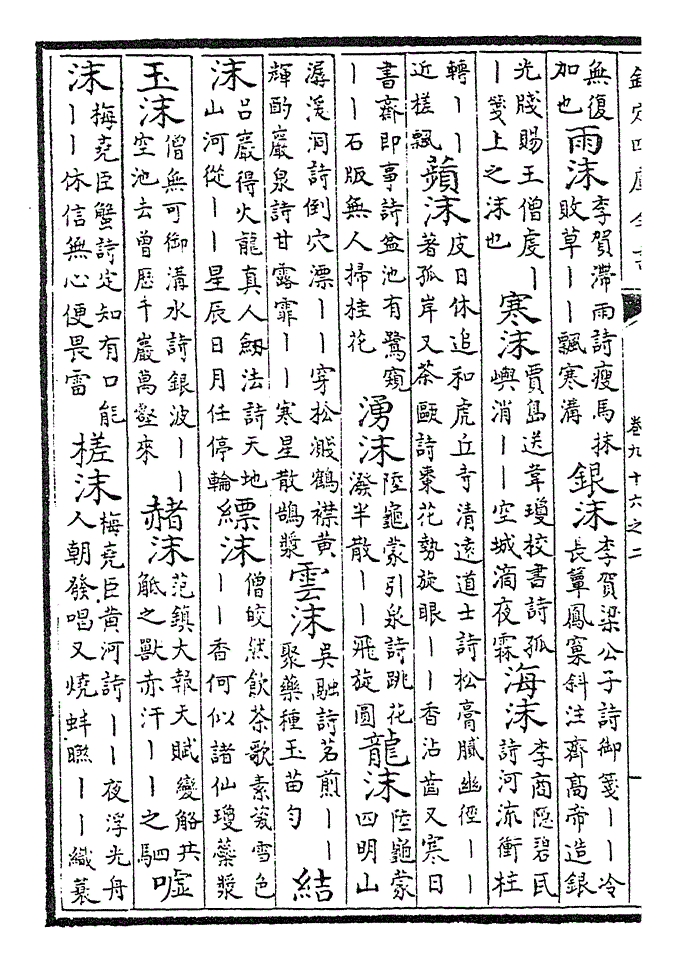 欽定四庫全書 卷九十六之二
無復
加也
雨沫
李賀滯雨詩瘦馬抹
敗草丨丨飄寒溝
銀沫
李賀梁公子詩御箋丨丨冷
長簟鳳窠斜注齊髙帝造銀
光牋賜王僧虔丨
丨箋上之沫也
寒沫
賈島送韋瓊校書詩孤
嶼消丨丨空城滴夜霖
海沫
李商隠碧瓦
詩河流衝柱
轉丨丨
近槎飄
蘋沫
皮日休追和虎丘寺清逺道士詩松膏膩幽徑丨丨
著孤岸又茶甌詩棗花勢旋眼丨丨香沾齒又寒日
書齋即事詩盆池有鷺窺
丨丨石版無人掃桂花
湧沫
陸龜蒙引泉詩跳花
潑半散丨丨飛旋圓
龍沫
陸龜蒙
四明山
潺湲洞詩倒穴漂丨丨穿松濺鶴襟黄
輝酌巖泉詩甘露霏丨丨寒星散鵠漿
雲沫
吳融詩茗煎丨丨
聚藥種玉苗勻
結
沫
呂巖得火龍真人劔法詩天地
山河從丨丨星辰日月任停輪
縹沫
僧皎然飲茶歌素瓷雪色
丨丨香何似諸仙瓊蘂漿
玉沫
僧無可御溝水詩銀波丨丨
空池去曾歴千巖萬壑來
赭沫
范鎮大報天賦變觡共
觝之獸赤汗丨丨之駟
噓
沫
梅堯臣蟹詩定知有口能
丨丨休信無心便畏雷
槎沫
梅堯臣黄河詩丨丨夜浮光舟
人朝發唱又燒蚌丨丨織蓑